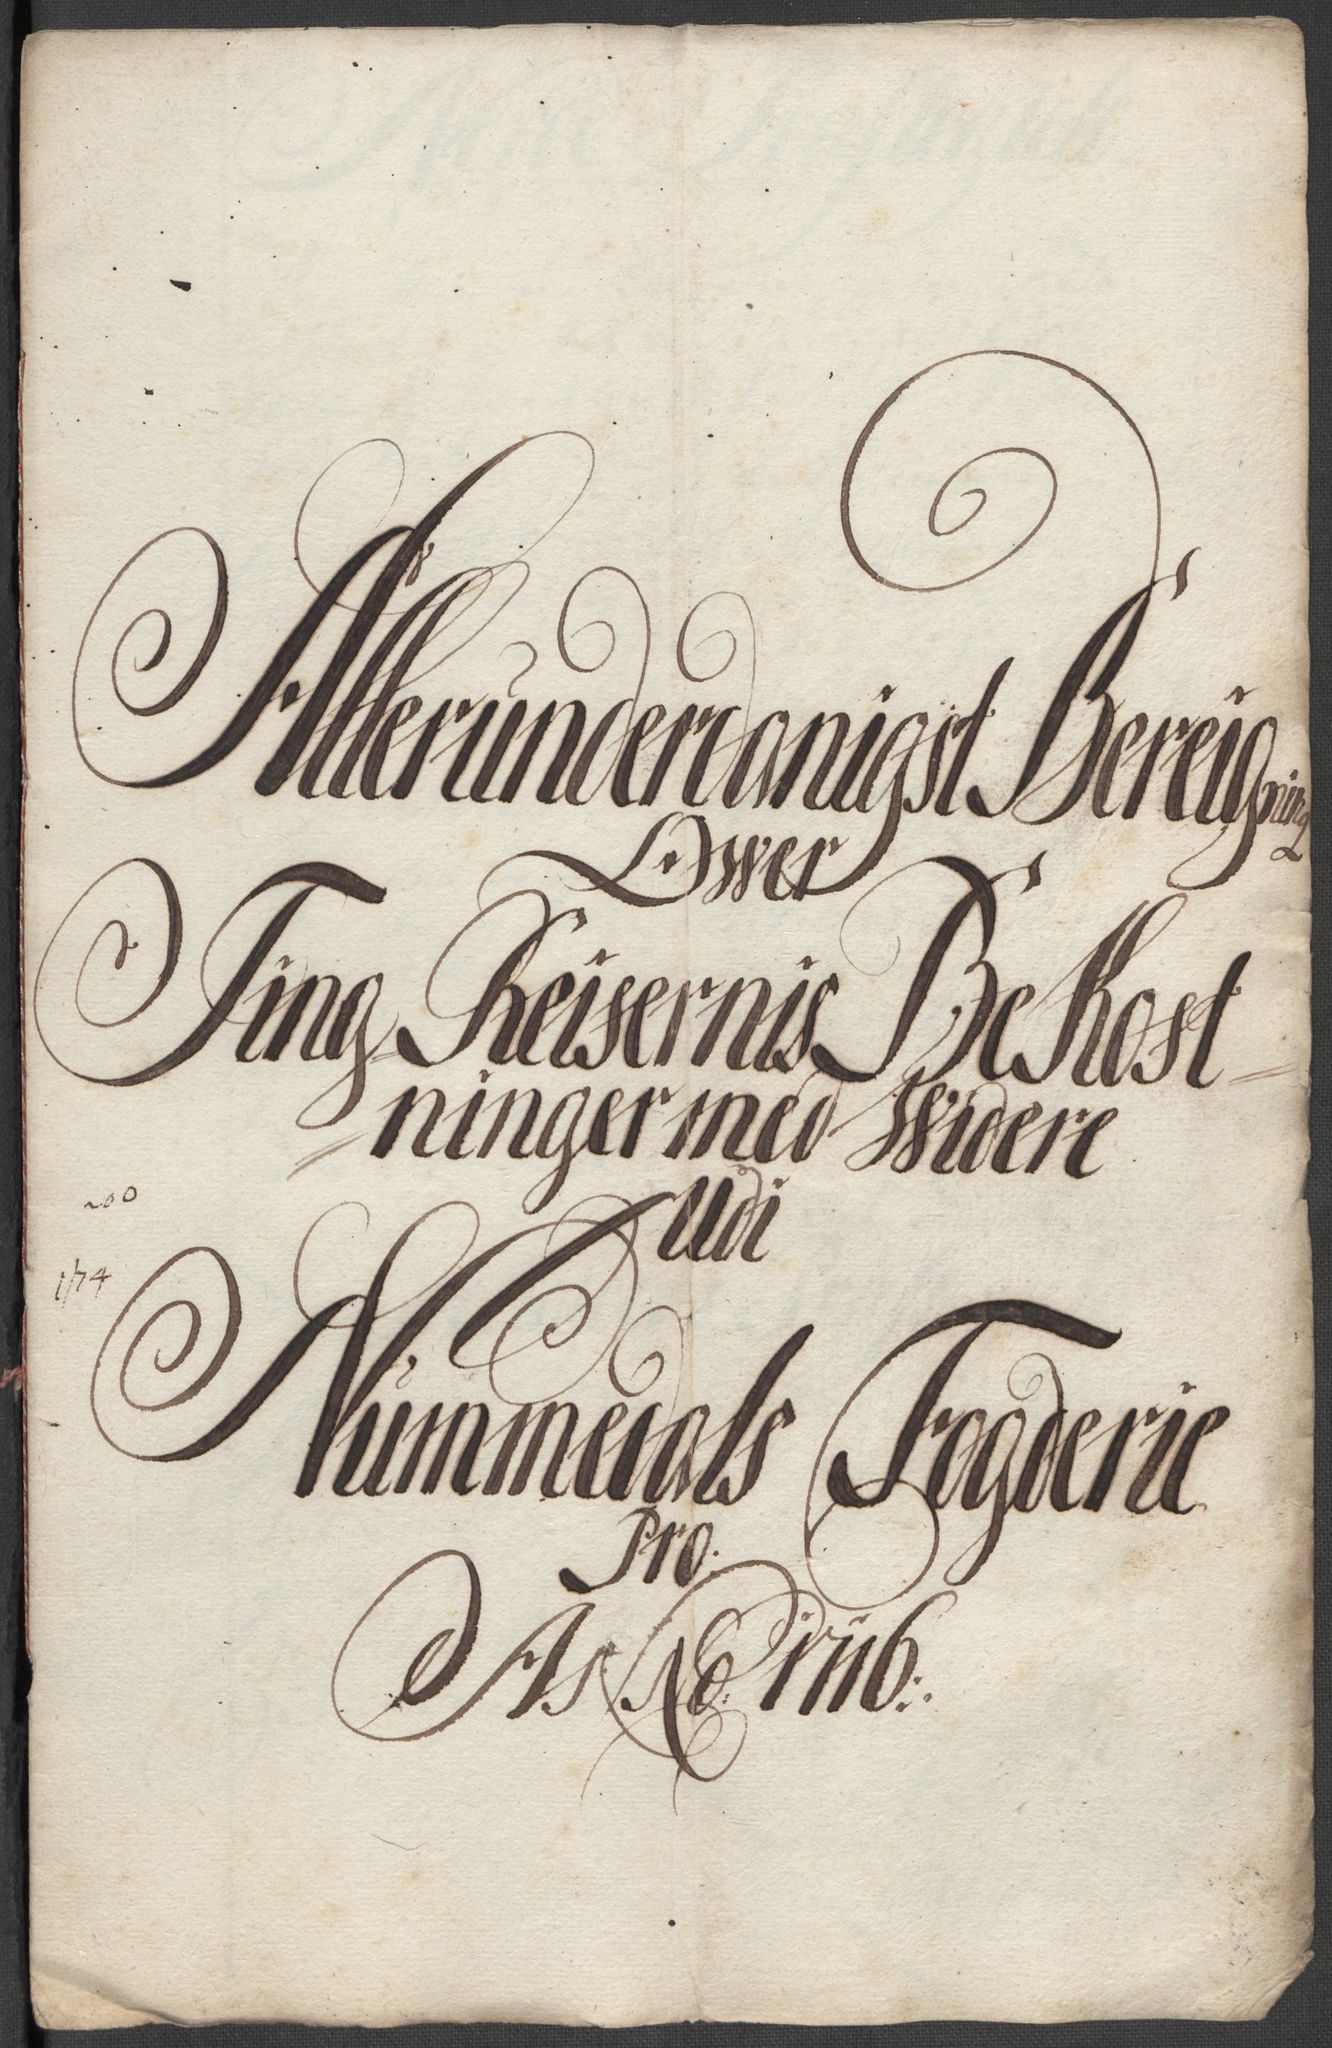 Allerunderdanigst Bereigning
Over
Ting Reisernis Bekost=
=ninger med Widere
Udi
Nummedals Fogderie
Pro.
As No: 1716:.
200
174